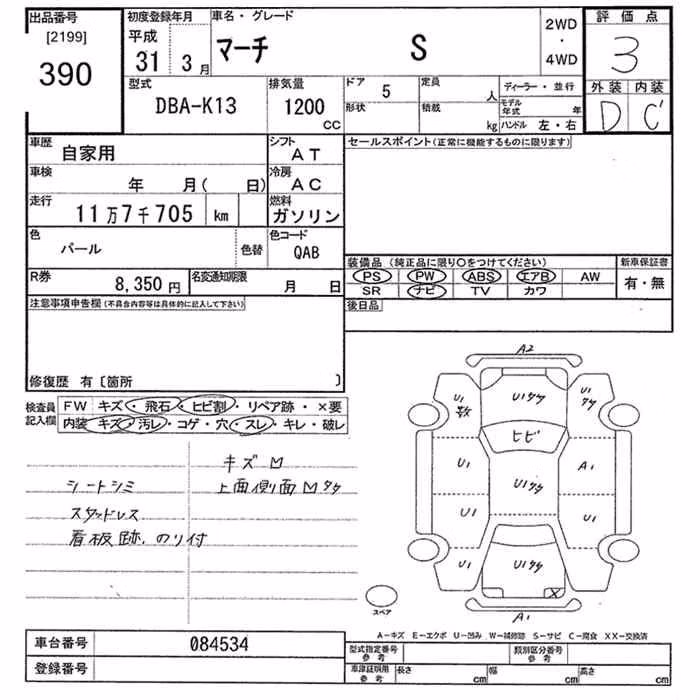 出品番号 初度登録年月 車名・グレード 2WD 評価点
[2199] 平成 ・
390 31 3月 マーチ S 4WD 3
型式 排気量 ドア 5 定員 人 ディーラー・並行 外装 内装
DBA-K13 1200 cc 形状 積載 kg モデル年式 年 D C'
ハンドル 左・右
車歴 自家用 シフト AT セールスポイント(正常に機能するものに限ります)
車検 年 月( 日) 冷房 AC
走行 11万7千705 km 燃料 ガソリン
色 パール 色替 色コード QAB
装備品 (純正品に限り○をつけてください) 新車保証書
PS PW ABS エアB AW 有・無
SR ナビ TV カワ
R券 8,350円 名変通知期限 月 日
後日品
注意事項申告欄(不具合内容等は具体的に記入して下さい)
修復歴 有〔箇所 〕
検査員記入欄 FW キズ・飛石・ヒビ割・リペア跡・×要
内装 キズ・汚レ・コゲ・穴・スレ・キレ・破レ
キズ凹
シートシミ 上面側面凹タタ
スタッドレス
看板跡、のり付
A2
U1 U1タタ U1タタ
ヒビ
U1 A1
U1タタ
U1 U1
U1 U1タタ U1
X
スペア A1
A-キズ E-エクボ U-凹み W-補修跡 S-サビ C-腐食 XX-交換済
車台番号 084534
型式指定番号 参考 類別区分番号 参考
登録番号
車庫証明用 参考 長さ cm 幅 cm 高さ cm